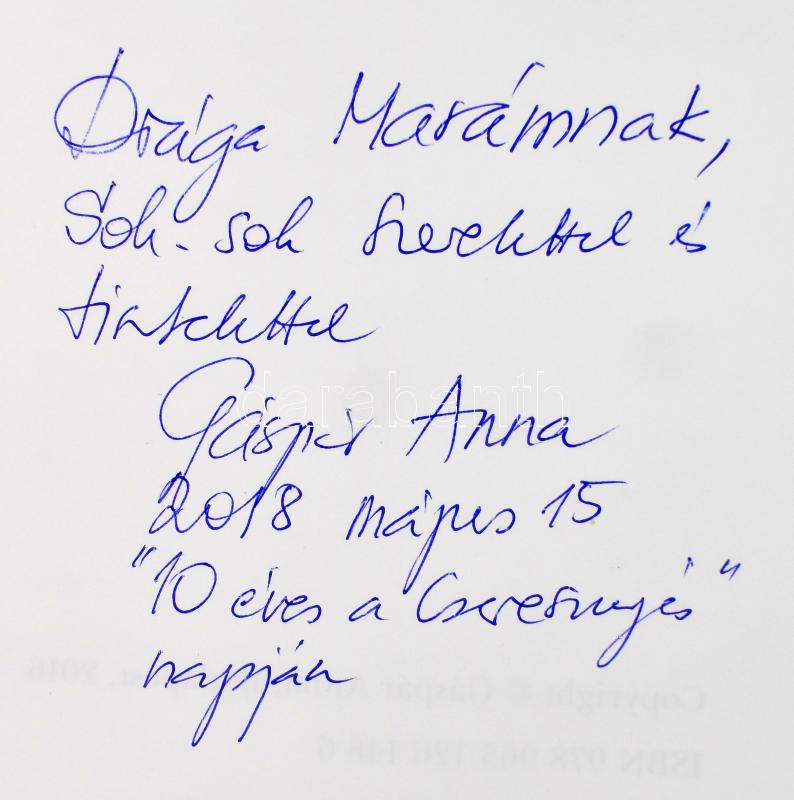 Drága Marámnak,
Sok-sok szeretettel és
tisztelettel
Gáspár Anna
2018 május 15
"10 éves a Cseresnyés"
napján
darabanth
Copyright © Gáspár Anna, 2016
ISBN 978 963 126 148 6